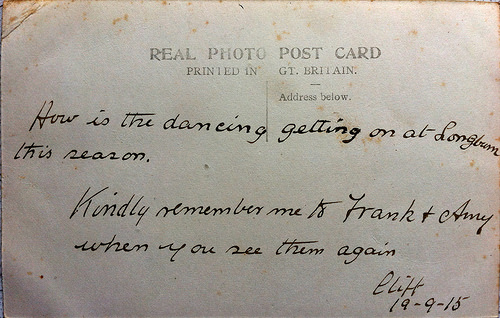 REAL PHOTO POST CARD
PRINTED IN GT. BRITAIN.
Address below.
How is the dancing getting on at Longburn
this season.
Kindly remember me to Frank & Amy
when you see them again
Cliff
19-9-15